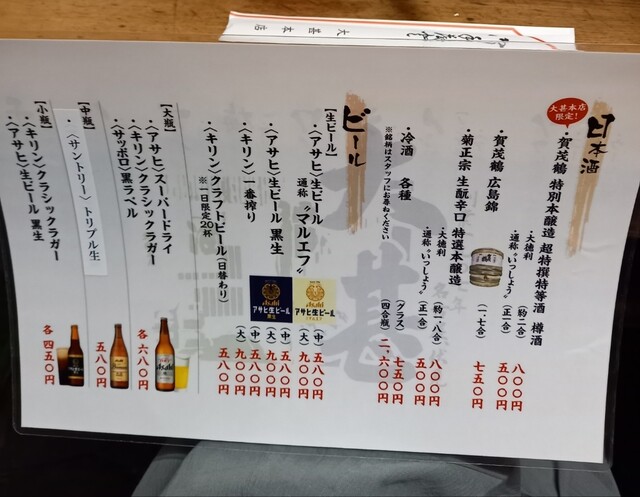 大甚本店
日本酒
大甚本店
限定!
・賀茂鶴 特別本醸造 超特撰特等酒 樽酒
・大徳利 (約二合) 八〇〇円
・通称“いっしょう” (正一合) 五〇〇円
・賀茂鶴 広島錦 (一、七合) 七五〇円
・菊正宗 生酛辛口 特選本醸造
・大徳利 (約一八合) 八〇〇円
・通称“いっしょう” (正一合) 五五〇円
・冷酒 各種 (グラス) 七五〇円
※銘柄はスタッフにお尋ねください (四合瓶) 二、六〇〇円
ビール
【生ビール】
・〈アサヒ〉生ビール (中) 五八〇円
通称“マルエフ” (大) 九〇〇円
・〈アサヒ〉生ビール 黒生 (中) 五八〇円
(大) 九〇〇円
・〈キリン〉一番搾り (中) 五八〇円
(大) 九〇〇円
・〈キリン〉クラフトビール(日替わり) 五八〇円
※一日限定20杯
Asahi
アサヒ生ビール
Asahi
アサヒ生ビール
黒生
【大瓶】
・〈アサヒ〉スーパードライ
・〈キリン〉クラシックラガー
・〈サッポロ〉黒ラベル
各 六八〇円
【中瓶】
・〈サントリー〉トリプル生 五八〇円
【小瓶】
・〈キリン〉クラシックラガー
・〈アサヒ〉生ビール 黒生
各 四五〇円
Asahi